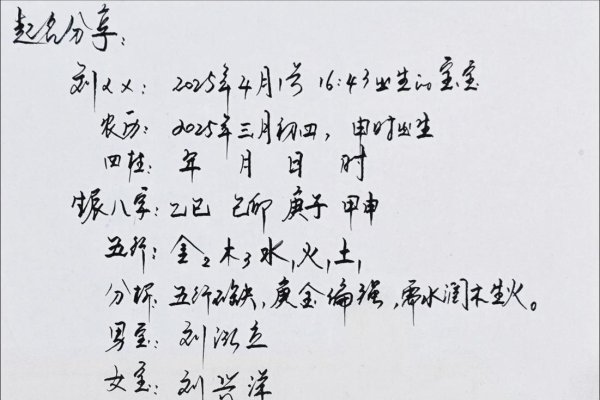 起名分享:
刘××: 2025年4月1号 16:43出生的宝宝
农历: 2025年三月初四, 申时出生
四柱: 年 月 日 时
生辰八字: 乙巳 己卯 庚子 甲申
五行: 金2 木3 水1 火1 土1
分析: 五行不缺, 庚金偏强, 需水润木生火。
男宝: 刘泓立
女宝: 刘兴洋